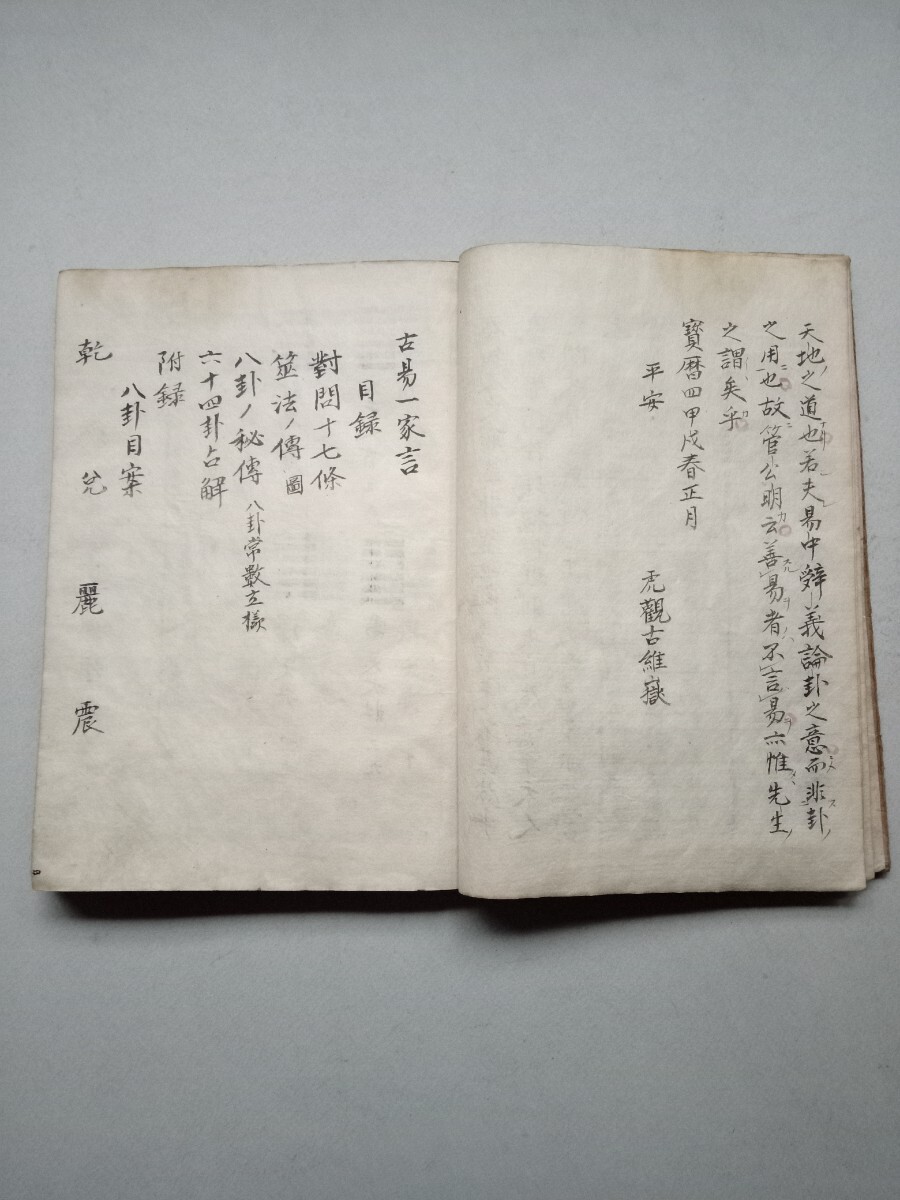 天地之道也若夫易中辭義論卦之意而非卦
之用也故管公明云善易者不言易亦惟先生
之謂矣乎
寶曆四甲戌春正月
平安　虎觀古維嶽
古易一家言
目録
對問十七條
筮法ノ傳 圖
八卦ノ秘傳 八卦常數立樣
六十四卦占解
附録
八卦目案
乾　兌　麗　震